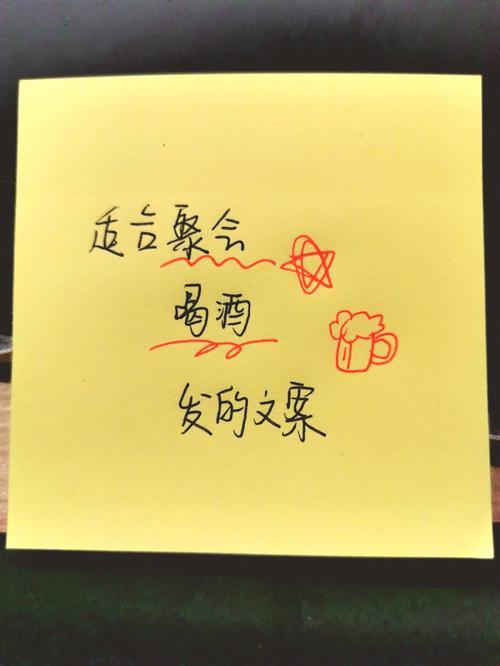 适合聚会
喝酒
发的文案